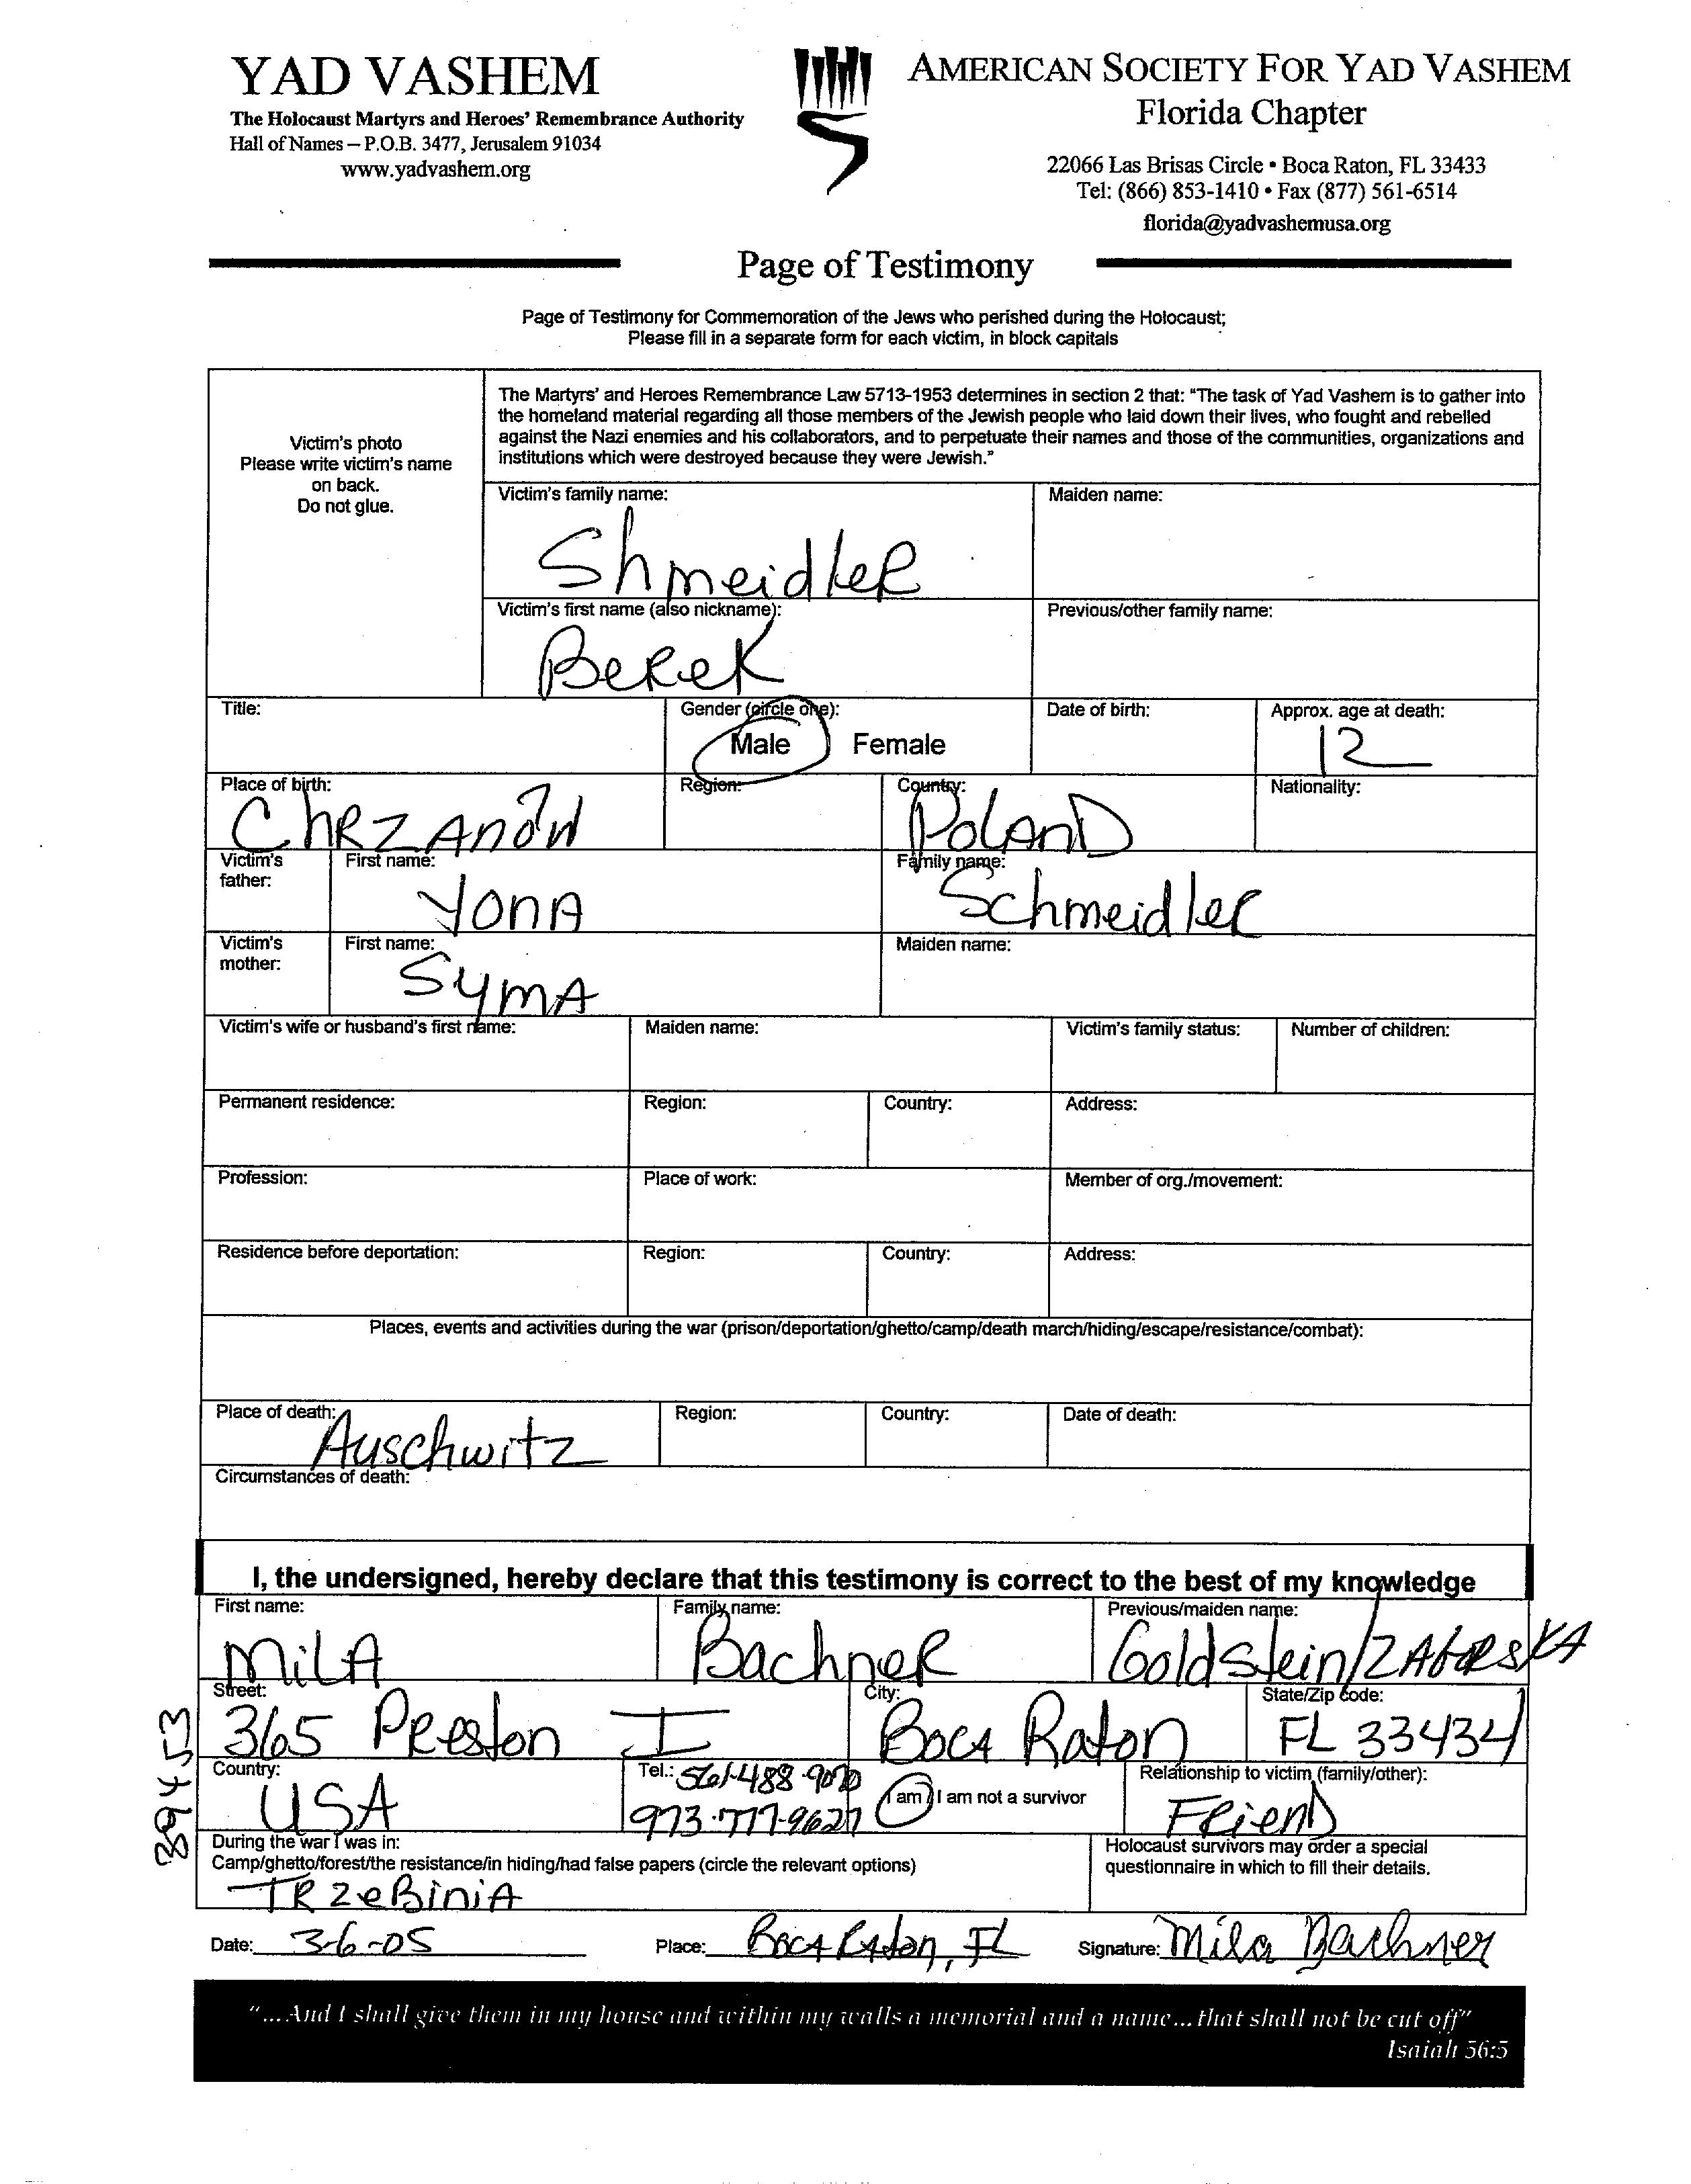 YAD VASHEM
The Holocaust Martyrs and Heroes' Remembrance Authority
Hall of Names – P.O.B. 3477, Jerusalem 91034
www.yadvashem.org
AMERICAN SOCIETY FOR YAD VASHEM
Florida Chapter
22066 Las Brisas Circle • Boca Raton, FL 33433
Tel: (866) 853-1410 • Fax (877) 561-6514
florida@yadvashemusa.org
Page of Testimony
Page of Testimony for Commemoration of the Jews who perished during the Holocaust;
Please fill in a separate form for each victim, in block capitals
Victim's photo
Please write victim's name
on back.
Do not glue.
The Martyrs' and Heroes Remembrance Law 5713-1953 determines in section 2 that: "The task of Yad Vashem is to gather into
the homeland material regarding all those members of the Jewish people who laid down their lives, who fought and rebelled
against the Nazi enemies and his collaborators, and to perpetuate their names and those of the communities, organizations and
institutions which were destroyed because they were Jewish."
Victim's family name: Maiden name:
ShmeidleR
Victim's first name (also nickname): Previous/other family name:
BeReK
Title: Gender (circle one): Date of birth: Approx. age at death:
Male Female 12
Place of birth: Region: Country: Nationality:
ChRZAnów PoLAnD
Victim's father: First name: Family name:
YonA Schmeidler
Victim's mother: First name: Maiden name:
SymA
Victim's wife or husband's first name: Maiden name: Victim's family status: Number of children:
Permanent residence: Region: Country: Address:
Profession: Place of work: Member of org./movement:
Residence before deportation: Region: Country: Address:
Places, events and activities during the war (prison/deportation/ghetto/camp/death march/hiding/escape/resistance/combat):
Place of death: Region: Country: Date of death:
Auschwitz
Circumstances of death:
I, the undersigned, hereby declare that this testimony is correct to the best of my knowledge
First name: Family name: Previous/maiden name:
MiLA BachneR Goldstein/ZAtoRSKA
Street: City: State/Zip code:
365 PReston I Boca Raton FL 33434
Country: Tel.: 561-488-9070 Relationship to victim (family/other):
USA 973-777-9627 I am I am not a survivor FRienD
During the war I was in:
Camp/ghetto/forest/the resistance/in hiding/had false papers (circle the relevant options)
TRZeBiniA
Holocaust survivors may order a special
questionnaire in which to fill their details.
Date: 3-6-05 Place: Boca Raton, FL Signature: Mila Bachner
389453
"...And I shall give them in my house and within my walls a memorial and a name... that shall not be cut off"
Isaiah 56:5